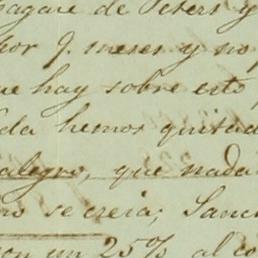 pagaré de Peters y
por J. meses y no p
que hay sobre esto
da hemos quitad
alegro, que nada
no se creia; Sanc
con un 25% al co